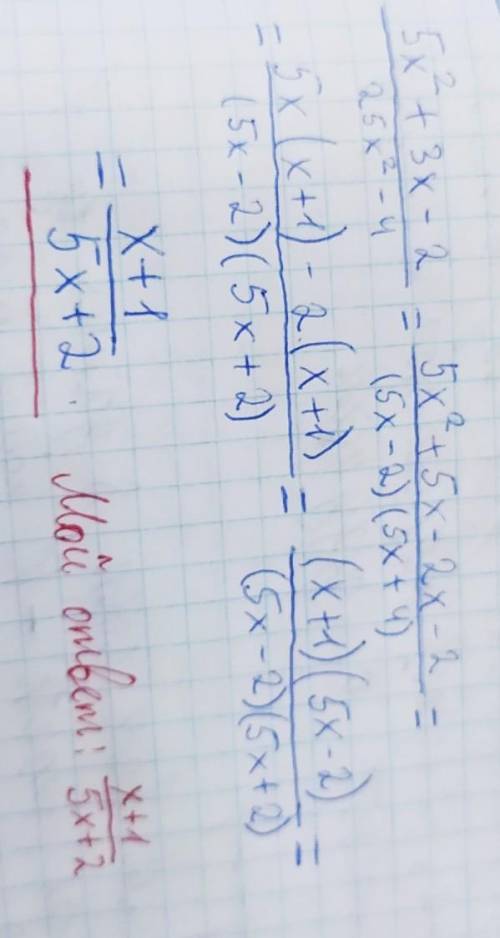 (5x² + 3x - 2)/(25x² - 4) = (5x² + 5x - 2x - 2)/((5x - 2)(5x + 4)) =
= (5x(x+1) - 2·(x+1))/((5x - 2)(5x + 2)) = ((x+1)(5x - 2))/((5x - 2)(5x + 2)) =
= (x+1)/(5x+2). Мой ответ: (x+1)/(5x+2)